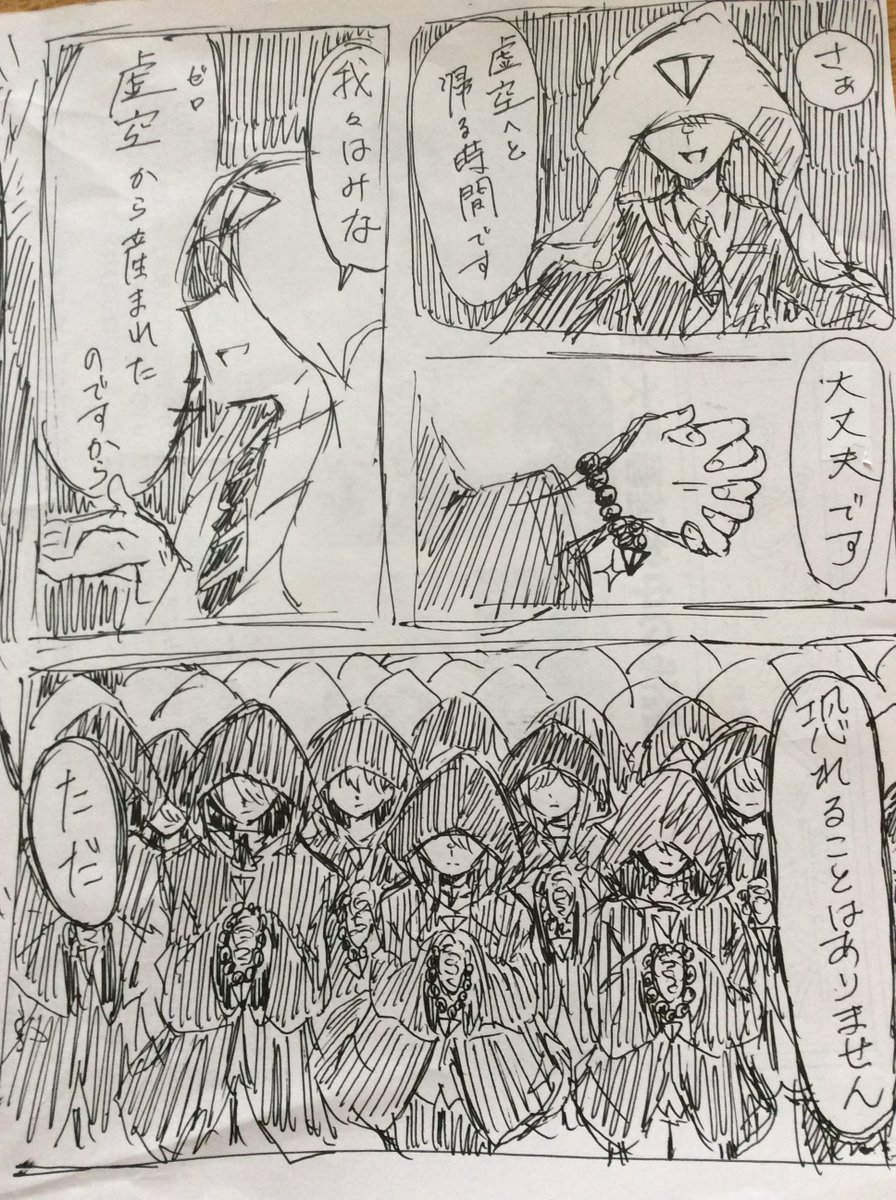 さぁ
虚空へと
帰る時間です
我々はみな
虚空から産まれた
ゼロ
のですから
大丈夫です
恐れることはありません
ただ